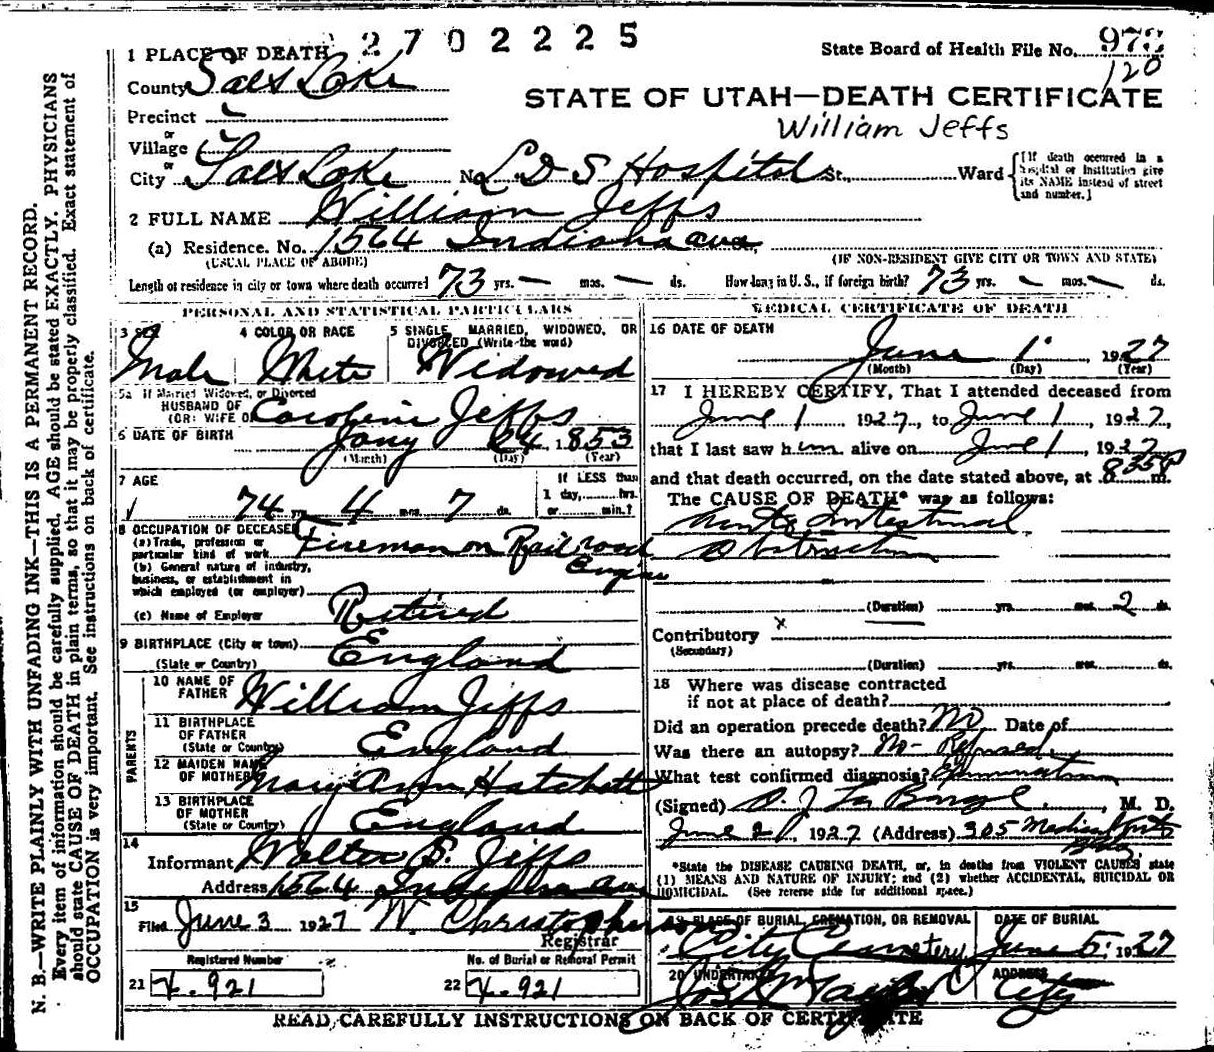 2702225
State Board of Health File No. 973
120
1 PLACE OF DEATH
County Salt Lake
STATE OF UTAH—DEATH CERTIFICATE
William Jeffs
Precinct
or
Village
or
City Salt Lake No. L D S Hospital St., Ward [If death occurred in a hospital or institution give its NAME instead of street and number.]
2 FULL NAME William Jeffs
(a) Residence. No. 1564 Indiana ave
(USUAL PLACE OF ABODE) (IF NON-RESIDENT GIVE CITY OR TOWN AND STATE)
Length of residence in city or town where death occurred 73 yrs. — mos. — ds. How long in U. S., if foreign birth? 73 yrs. — mos. — ds.
PERSONAL AND STATISTICAL PARTICULARS
3 SEX 4 COLOR OR RACE 5 SINGLE, MARRIED, WIDOWED, OR DIVORCED (Write the word)
Male White Widowed
5a If Married Widowed, or Divorced
HUSBAND OF
(OR) WIFE OF Caroline Jeffs
6 DATE OF BIRTH Jany 24 1853
(Month) (Day) (Year)
7 AGE If LESS than
1 day, hrs.
74 yrs. 4 mos. 7 ds. or min.?
8 OCCUPATION OF DECEASED
(a) Trade, profession or
particular kind of work Fireman on Railroad
Engine
(b) General nature of industry,
business, or establishment in
which employed (or employer)
(c) Name of Employer Retired
9 BIRTHPLACE (City or town)
(State or Country) England
PARENTS
10 NAME OF
FATHER William Jeffs
11 BIRTHPLACE
OF FATHER
(State or Country) England
12 MAIDEN NAME
OF MOTHER Mary Ann Hatchett
13 BIRTHPLACE
OF MOTHER
(State or Country) England
14
Informant Walter E. Jeffs
Address 1564 Indiana Ave
15
Filed June 3 1927 W. Christopherson
Registrar
Registered Number No. of Burial or Removal Permit
21 X-921 22 X-921
MEDICAL CERTIFICATE OF DEATH
16 DATE OF DEATH
June 1 , 1927
(Month) (Day) (Year)
17 I HEREBY CERTIFY, That I attended deceased from
June 1 1927, to June 1 , 1927,
that I last saw him alive on June 1 , 1927
and that death occurred, on the date stated above, at 8 35 P m.
The CAUSE OF DEATH* was as follows:
Acute Intestinal
Obstruction
(Duration) yrs. mos. 2 ds.
Contributory x
(Secondary)
(Duration) yrs. mos. ds.
18 Where was disease contracted
if not at place of death?
Did an operation precede death? No Date of
Was there an autopsy? No - Refused
What test confirmed diagnosis? Examination
(Signed) , M. D.
June 2 , 1927 (Address) 305 Medical Arts
Bldg
*State the DISEASE CAUSING DEATH, or, in deaths from VIOLENT CAUSES state
(1) MEANS AND NATURE OF INJURY; and (2) whether ACCIDENTAL, SUICIDAL OR
HOMICIDAL. (See reverse side for additional space.)
19 PLACE OF BURIAL, CREMATION, OR REMOVAL DATE OF BURIAL
City Cemetery June 5, 1927
20 UNDERTAKER ADDRESS
Jos Wm Taylor City
READ CAREFULLY INSTRUCTIONS ON BACK OF CERTIFICATE
N. B.—WRITE PLAINLY WITH UNFADING INK—THIS IS A PERMANENT RECORD.
Every item of information should be carefully supplied. AGE should be stated EXACTLY. PHYSICIANS
should state CAUSE OF DEATH in plain terms, so that it may be properly classified. Exact statement of
OCCUPATION is very important. See instructions on back of certificate.